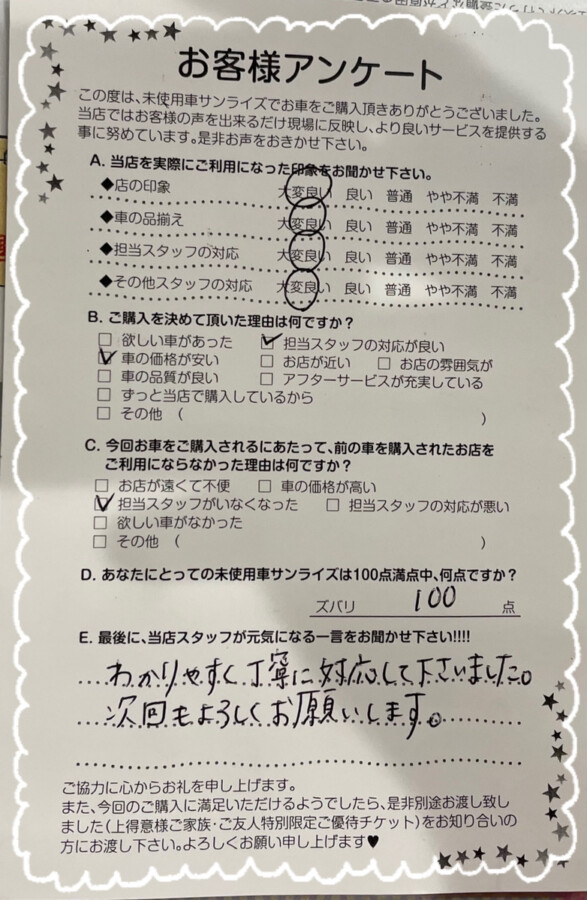 お客様アンケート
この度は、未使用車サンライズでお車をご購入頂きありがとうございました。
当店ではお客様の声を出来るだけ現場に反映し、より良いサービスを提供する
事に努めています。是非お声をおきかせ下さい。
A. 当店を実際にご利用になった印象をお聞かせ下さい。
◆店の印象 大変良い 良い 普通 やや不満 不満
◆車の品揃え 大変良い 良い 普通 やや不満 不満
◆担当スタッフの対応 大変良い 良い 普通 やや不満 不満
◆その他スタッフの対応 大変良い 良い 普通 やや不満 不満
B. ご購入を決めて頂いた理由は何ですか？
□ 欲しい車があった ☑ 担当スタッフの対応が良い
☑ 車の価格が安い □ お店が近い □ お店の雰囲気が
□ 車の品質が良い □ アフターサービスが充実している
□ ずっと当店で購入しているから
□ その他 ( )
C. 今回お車をご購入されるにあたって、前の車を購入されたお店を
ご利用にならなかった理由は何ですか？
□ お店が遠くて不便 □ 車の価格が高い
☑ 担当スタッフがいなくなった □ 担当スタッフの対応が悪い
□ 欲しい車がなかった
□ その他 ( )
D. あなたにとっての未使用車サンライズは100点満点中、何点ですか？
ズバリ 100 点
E. 最後に、当店スタッフが元気になる一言をお聞かせ下さい!!!!
わかりやすく丁寧に対応して下さいました。
次回もよろしくお願いします。
ご協力に心からお礼を申し上げます。
また、今回のご購入に満足いただけるようでしたら、是非別途お渡し致し
ました(上得意様ご家族・ご友人特別限定ご優待チケット)をお知り合いの
方にお渡し下さい。よろしくお願い申し上げます♥